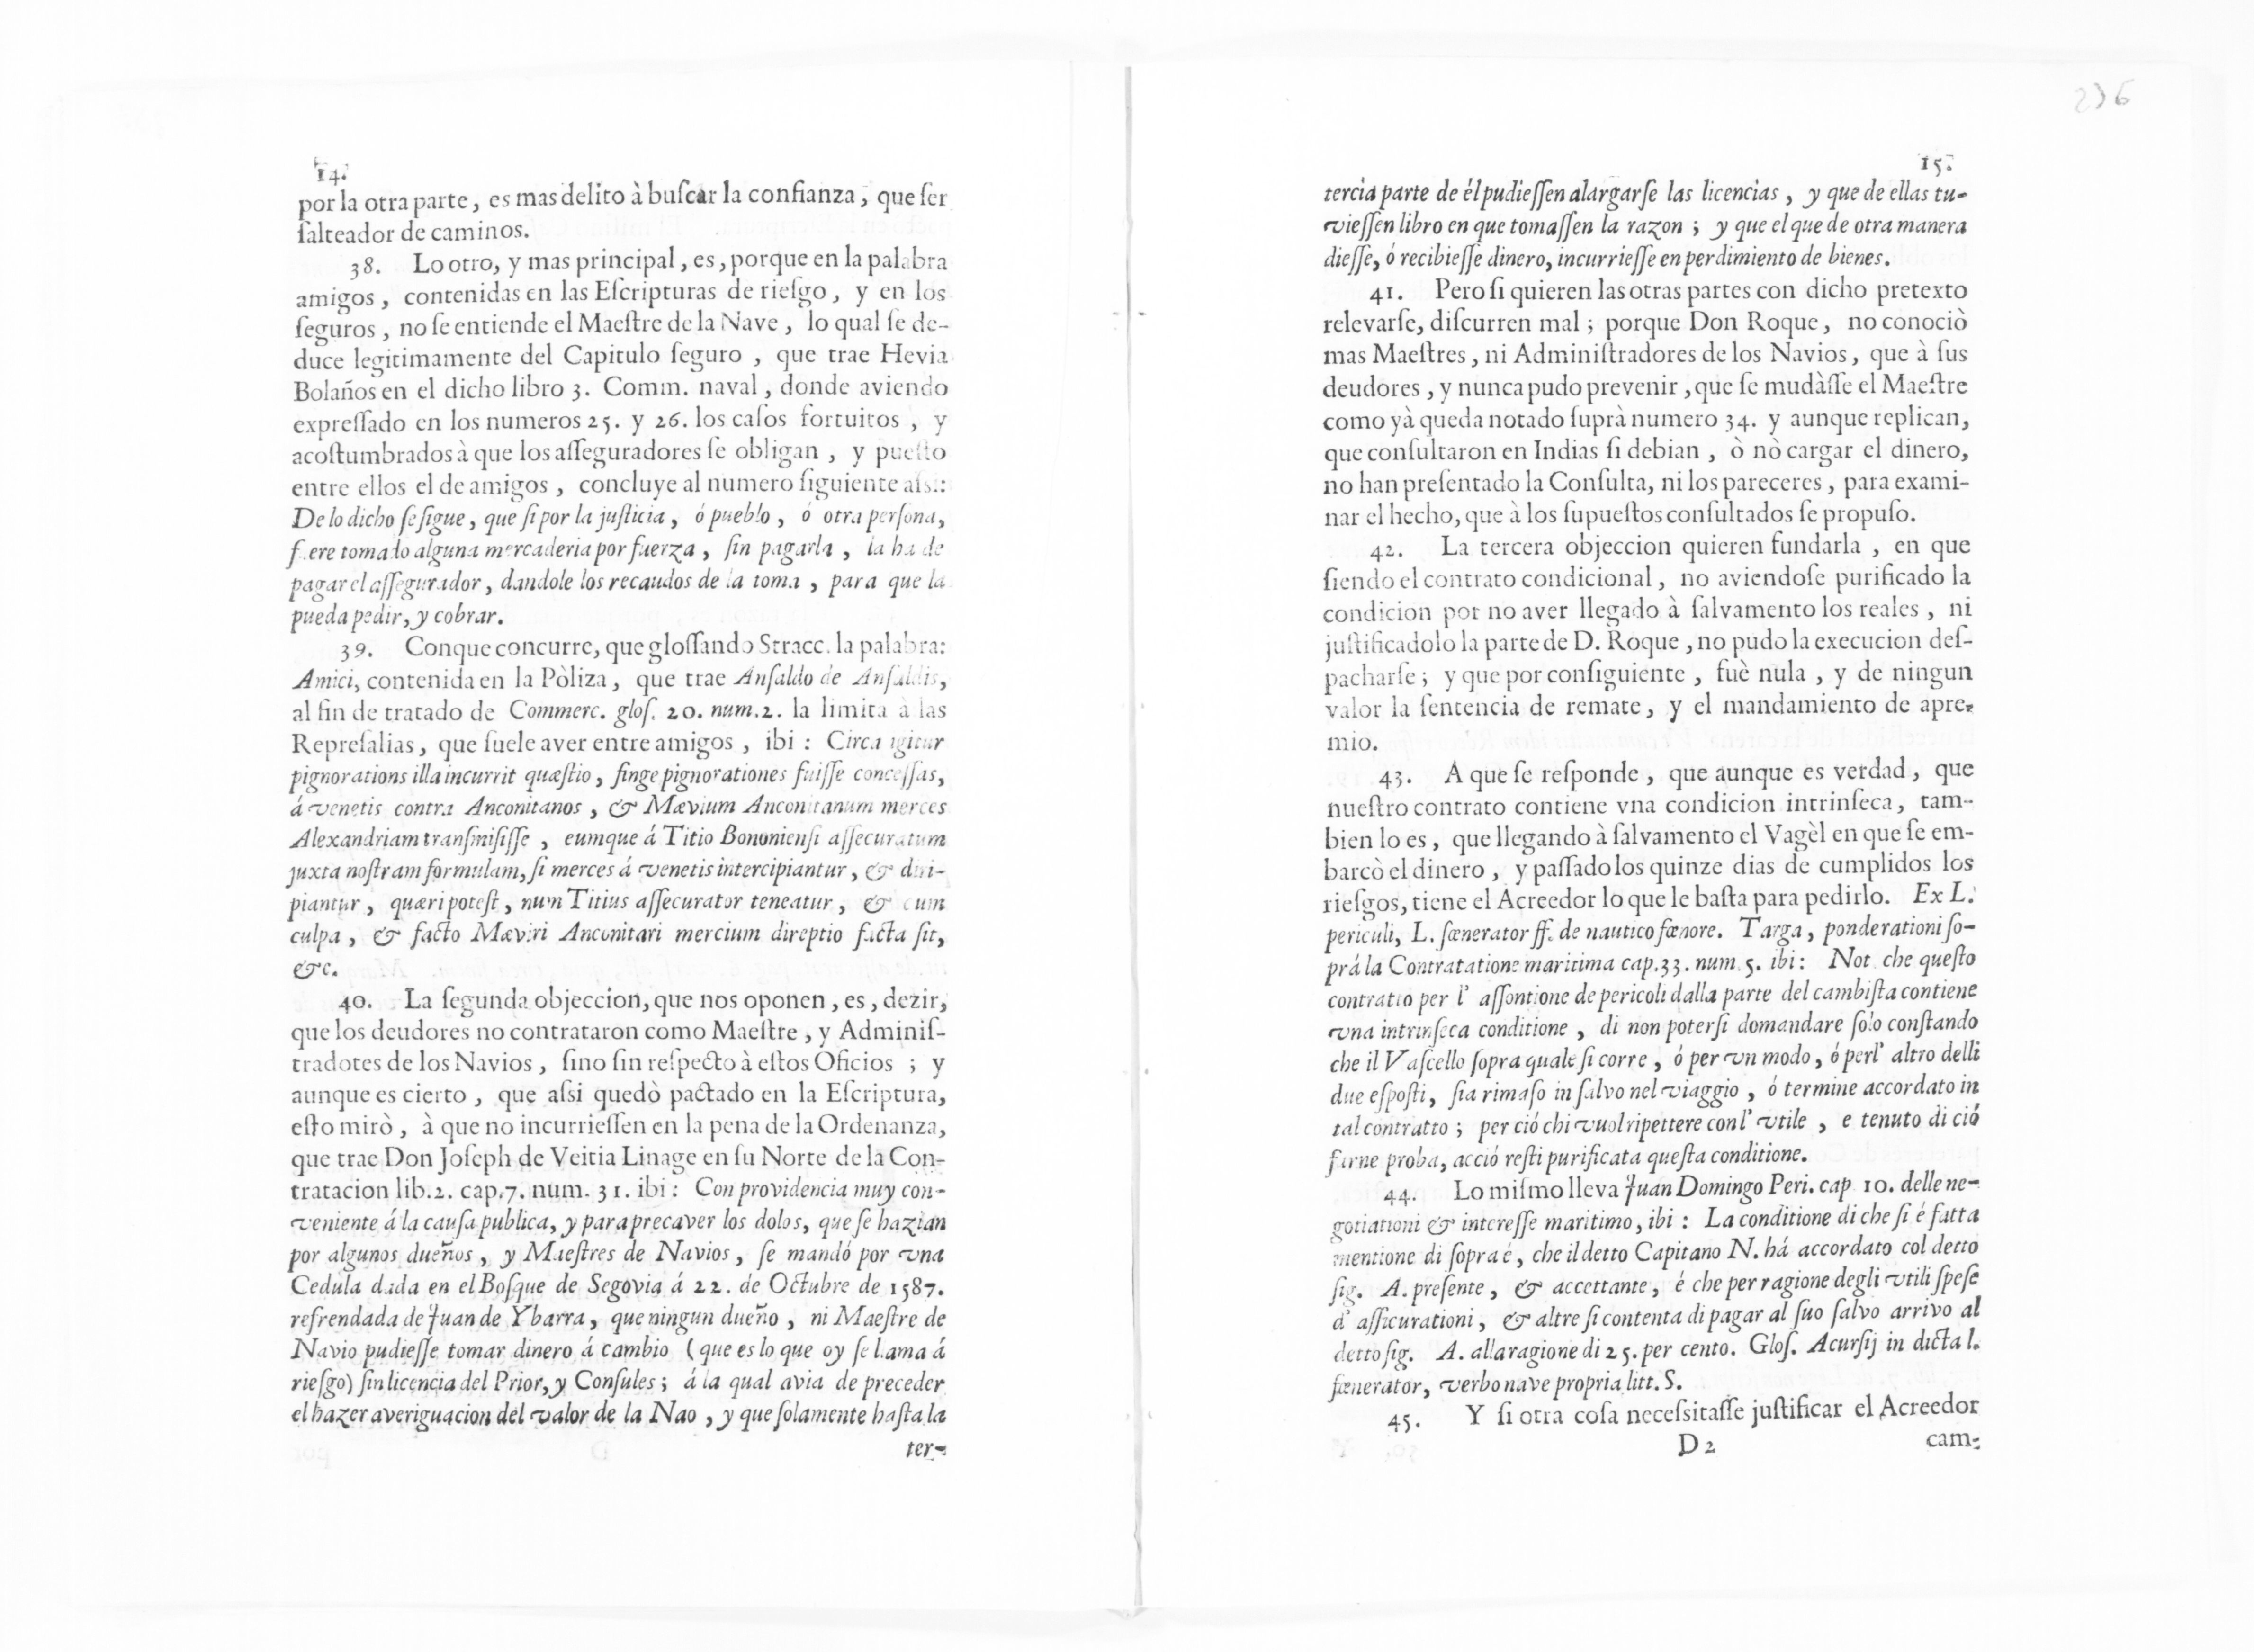 14.
por la otra parte, es mas delito à buſcar la confianza, que ſer
ſalteador de caminos.
38. Lo otro, y mas principal, es, porque en la palabra
amigos, contenidas en las Eſcripturas de rieſgo, y en los
ſeguros, no ſe entiende el Maeſtre de la Nave, lo qual ſe de-
duce legitimamente del Capitulo ſeguro, que trae Hevia
Bolaños en el dicho libro 3. Comm. naval, donde aviendo
expreſſado en los numeros 25. y 26. los caſos fortuitos, y
acoſtumbrados à que los aſſeguradores ſe obligan, y pueſto
entre ellos el de amigos, concluye al numero ſiguiente aſsi:
De lo dicho ſe ſigue, que ſi por la juſticia, ó pueblo, ó otra perſona,
fuere tomado alguna mercaderia por fuerza, ſin pagarla, la ha de
pagar el aſſegurador, dandole los recaudos de la toma, para que la
pueda pedir, y cobrar.
39. Conque concurre, que gloſſando Stracc. la palabra:
Amici, contenida en la Pòliza, que trae Anſaldo de Anſaldis,
al fin de tratado de Commerc. gloſ. 20. num.2. la limita à las
Repreſalias, que ſuele aver entre amigos, ibi: Circa igitur
pignorations illa incurrit quæſtio, finge pignorationes fuiſſe conceſſas,
á venetis contra Anconitanos, & Mævium Anconitanum merces
Alexandriam tranſmiſiſſe, eumque á Titio Bononienſi aſſecuratum
juxta noſtram formulam, ſi merces á venetis intercipiantur, & diri-
piantur, quæri poteſt, num Titius aſſecurator teneatur, & cum
culpa, & facto Mæviri Anconitari mercium direptio facta ſit,
&c.
40. La ſegunda objeccion, que nos oponen, es, dezir,
que los deudores no contrataron como Maeſtre, y Adminiſ-
tradotes de los Navios, ſino ſin reſpecto à eſtos Oficios; y
aunque es cierto, que aſsi quedò pactado en la Eſcriptura,
eſto mirò, à que no incurrieſſen en la pena de la Ordenanza,
que trae Don Joſeph de Veitia Linage en ſu Norte de la Con-
tratacion lib.2. cap.7. num. 31. ibi: Con providencia muy con-
veniente á la cauſa publica, y para precaver los dolos, que ſe hazian
por algunos dueños, y Maeſtres de Navios, ſe mandó por vna
Cedula dada en el Boſque de Segovia á 22. de Octubre de 1587.
refrendada de Juan de Ybarra, que ningun dueño, ni Maeſtre de
Navio pudieſſe tomar dinero á cambio (que es lo que oy ſe llama á
rieſgo) ſin licencia del Prior, y Conſules; á la qual avia de preceder
el hazer averiguacion del valor de la Nao, y que ſolamente haſta la
ter-
236
15.
tercia parte de él pudieſſen alargarſe las licencias, y que de ellas tu-
vieſſen libro en que tomaſſen la razon; y que el que de otra manera
dieſſe, ó recibieſſe dinero, incurrieſſe en perdimiento de bienes.
41. Pero ſi quieren las otras partes con dicho pretexto
relevarſe, diſcurren mal; porque Don Roque, no conociò
mas Maeſtres, ni Adminiſtradores de los Navios, que à ſus
deudores, y nunca pudo prevenir, que ſe mudàſſe el Maeſtre
como yà queda notado ſuprà numero 34. y aunque replican,
que conſultaron en Indias ſi debian, ò nò cargar el dinero,
no han preſentado la Conſulta, ni los pareceres, para exami-
nar el hecho, que à los ſupueſtos conſultados ſe propuſo.
42. La tercera objeccion quieren fundarla, en que
ſiendo el contrato condicional, no aviendoſe purificado la
condicion por no aver llegado à ſalvamento los reales, ni
juſtificadolo la parte de D. Roque, no pudo la execucion deſ-
pacharſe; y que por conſiguiente, fuè nula, y de ningun
valor la ſentencia de remate, y el mandamiento de apre-
mio.
43. A que ſe reſponde, que aunque es verdad, que
nueſtro contrato contiene vna condicion intrinſeca, tam-
bien lo es, que llegando à ſalvamento el Vagèl en que ſe em-
barcò el dinero, y paſſado los quinze dias de cumplidos los
rieſgos, tiene el Acreedor lo que le baſta para pedirlo. Ex L.
periculi, L. fœnerator ff. de nautico fœnore. Targa, ponderationi ſo-
prá la Contratatione maritima cap.33. num. 5. ibi: Not che queſto
contratto per l' aſſontione de pericoli dalla parte del cambiſta contiene
vna intrinſeca conditione, di non poterſi domandare ſolo conſtando
che il Vaſcello ſopra quale ſi corre, ó per vn modo, ó perl' altro delli
due eſpoſti, ſia rimaſo in ſalvo nel viaggio, ó termine accordato in
tal contratto; per ció chi vuol ripettere con l' vtile, e tenuto di ció
farne proba, acció reſti purificata queſta conditione.
44. Lo miſmo lleva Juan Domingo Peri. cap 10. delle ne-
gotiationi & intereſſe maritimo, ibi: La conditione di che ſi é fatta
mentione di ſopra é, che il detto Capitano N. há accordato col detto
ſig. A. preſente, & accettante, é che per ragione degli vtili ſpeſe
d' aſſicurationi, & altre ſi contenta di pagar al ſuo ſalvo arrivo al
detto ſig. A. alla ragione di 25. per cento. Gloſ. Acurſij in dicta l.
fœnerator, verbo nave propria litt. S.
45. Y ſi otra coſa neceſsitaſſe juſtificar el Acreedor
D 2
cam-